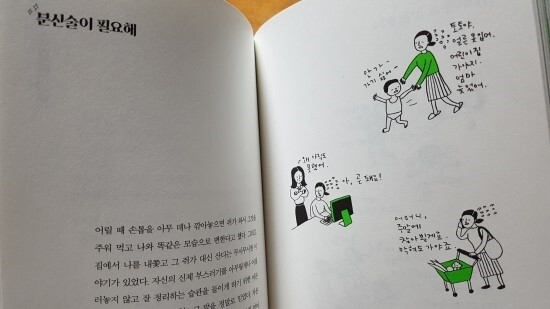 분신술이 필요해
어릴 때 손톱을 아무 데나 깎아놓으면 쥐가 와서 그것을
주워 먹고 나와 똑같은 모습으로 변한다고 했다. 그리고
집에서 나를 내쫓고 그 쥐가 대신 산다는 무시무시한 이
야기가 있었다. 자신의 신체 부스러기를 아무렇게나 어
러놓지 않고 잘 정리하는 습관을 들이게 하기 위한
말을 정말로 믿었다
또또야,
얼른 옷 입어.
어린이집
가야지.
엄마
늦었어.
안 가.
가기 싫어~
왜 아직도
못했어.
아, 곧 돼요!
어머니,
주말에
찾아뵐게요.
안 가도